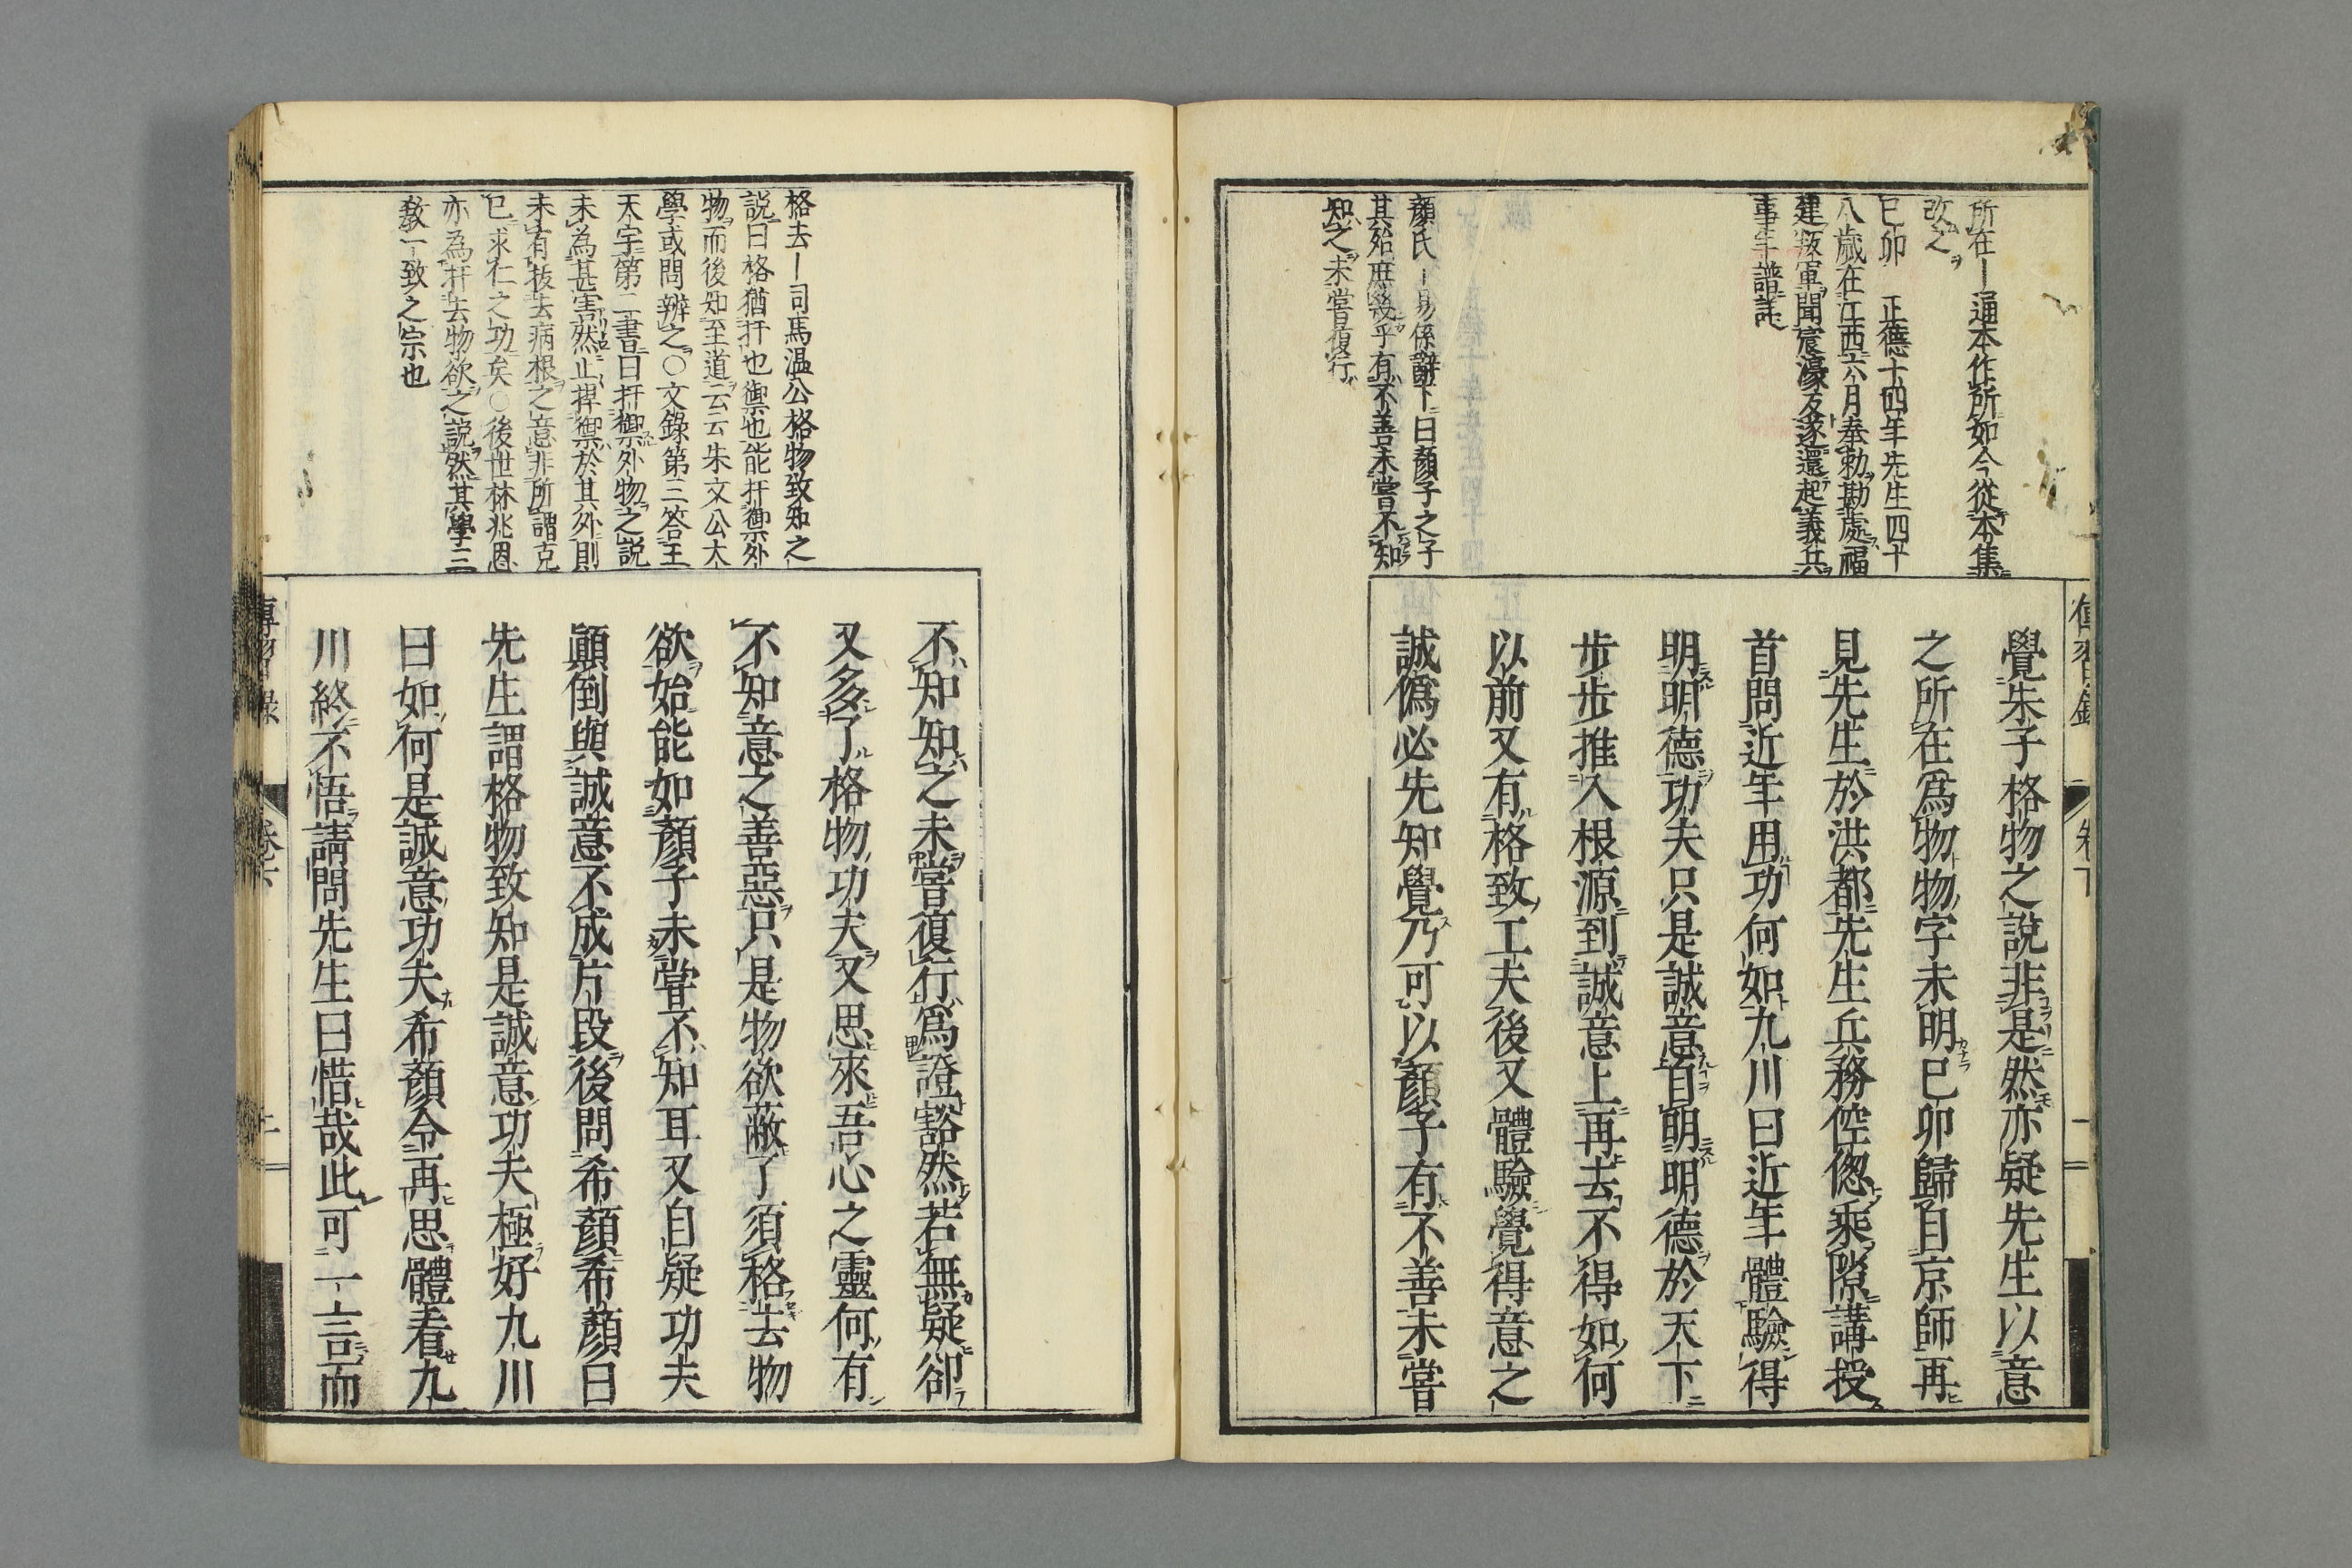 傳習錄
卷下
二
所在ー通本作所如今從本集
改之
已卯 正德十四年先生四十
八歲在江西六月奉勅勘處福
建叛軍聞宸濠反遂還起義兵
事年譜詳
顏氏ー易係辭下曰顏子之子
其殆庶幾乎有不善未嘗不知
知之未嘗復行
覺朱子格物之說非是然亦疑先生以意
之所在爲物物字未明已卯歸自京師再
見先生於洪都先生兵務倥偬乘隙講授
首問近年用功何如九川曰近年體驗得
明明德功夫只是誠意自明明德於天下
步步推入根源到誠意上再去不得如何
以前又有格致工夫後又體驗覺得意之
誠僞必先知覺乃可以顏子有不善未嘗
格去ー司馬溫公格物致知之
說曰格猶扞也禦也能扞禦外
物而後知至道云云朱文公大
學或問辨之○文錄第三答王
天宇第二書曰扞禦外物之説
未為甚害然止捍禦於其外則
未有拔去病根之意非所謂克
已求仁之功矣○後世林兆恩
亦為扞去物欲之說然其學三
教一致之宗也
不知知之未嘗復行爲證豁然若無疑卻
又多了格物功夫又思來吾心之靈何有
不知意之善惡只是物欲蔽了須格去物
欲始能如顏子未嘗不知耳又自疑功夫
顚倒與誠意不成片段後問希顏希顏曰
先生謂格物致知是誠意功夫極好九川
曰如何是誠意功夫希顏令再思體看九
川終不悟請問先生曰惜哉此可一言而
傳習錄
卷下
二